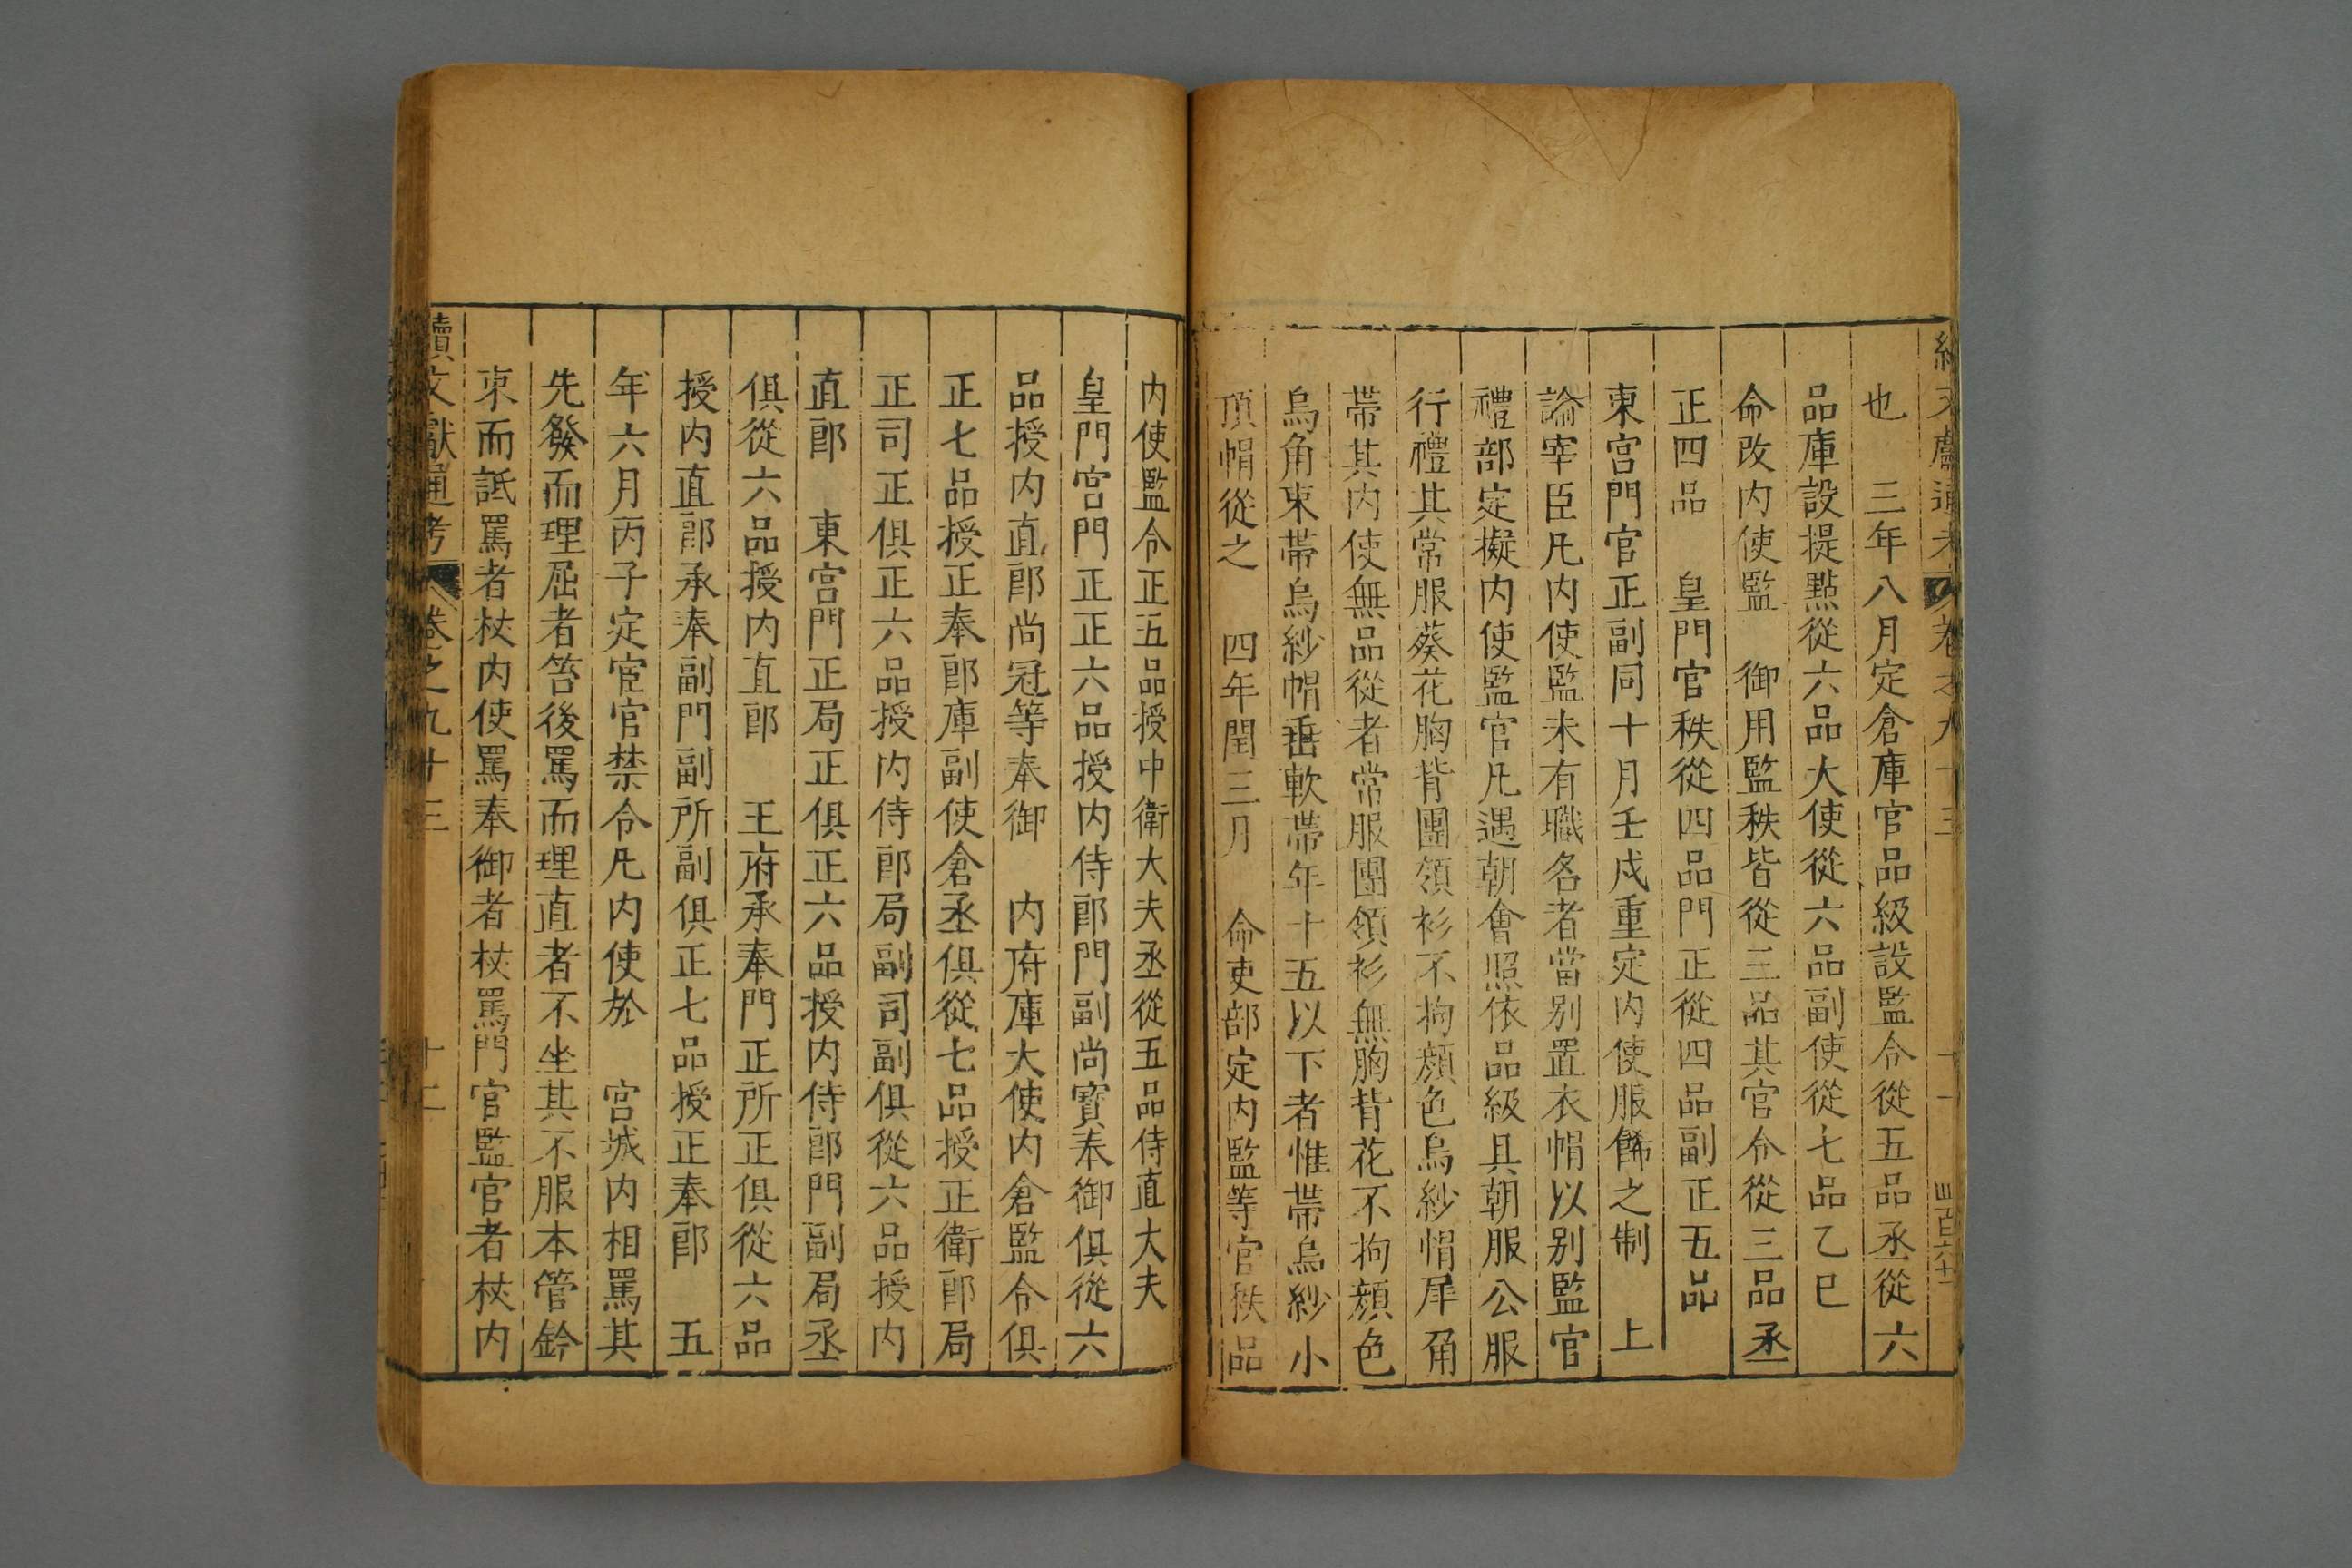 也　三年八月定倉庫官品級設監令從五品丞從六
品庫設提點從六品大使從六品副使從七品乙巳
命改内使監　御用監秩皆從三品其官令從三品丞
正四品　皇門官秩從四品門正從四品副正五品
東宫門官正副同十月壬戌重定内使服餙之制　上
諭宰臣凡内使監未有職名者當别置衣帽以别監官
禮部定擬内使監官凡遇朝會照依品級具朝服公服
行禮其常服葵花胸背團領衫不拘顔色烏紗帽犀角
帶其内使無品從者常服團領衫無胸背花不拘顔色
烏角束帶烏紗帽垂軟帶年十五以下者惟帶烏紗小
頂帽從之　四年閏三月　命吏部定内監等官秩品
内使監令正五品授中衛大夫丞從五品侍直大夫
皇門宫門正正六品授内侍郎門副尚寳奉御俱從六
品授内直郎尚冠等奉御　内府庫大使内倉監令俱
正七品授正奉郎庫副使倉丞俱從七品授正衛郎局
正司正俱正六品授内侍郎局副司副俱從六品授内
直郎　東宫門正局正俱正六品授内侍郎門副局丞
俱從六品授内直郎　王府承奉門正所正俱從六品
授内直郎承奉副門副所副俱正七品授正奉郎　五
年六月丙子定宦官禁令凡内使於　宫城内相罵其
先發而理屈者笞後罵而理直者不坐其不服本管鈐
束而詆罵者杖内使罵奉御者杖罵門官監官者杖内
續文獻通考　卷之九十三　十二